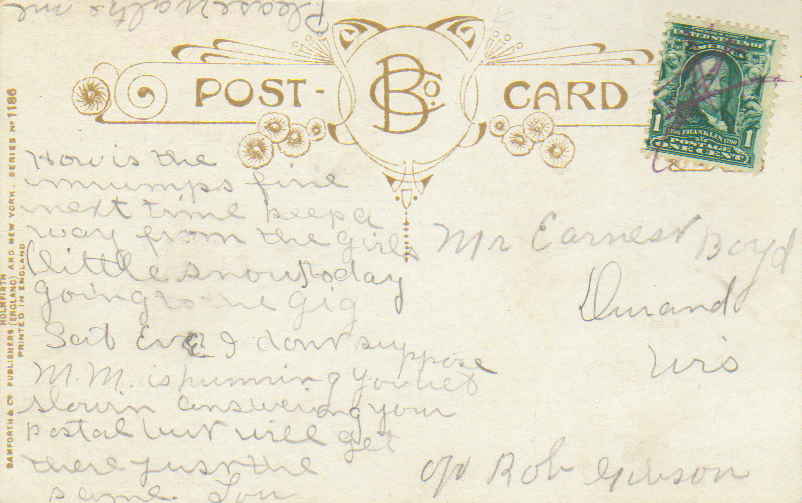 Please write me
POST- BCo. CARD
UNITED STATES OF
AMERICA
1 FRANKLIN 1
POSTAGE
ONE CENT
How is the
mumps fine
next time keep a
way from the girls
little snow today
going to the gig
Sat Eve I dont suppose
M.M. is humming you
slow in answering your
postal but will get
there just the
same. Lou
Mr Earnest Boyd
Durand
Wis
c/o Rob Gibson
BAMFORTH & CO. PUBLISHERS HOLMFIRTH (ENGLAND) AND NEW YORK. SERIES No 1186
PRINTED IN ENGLAND